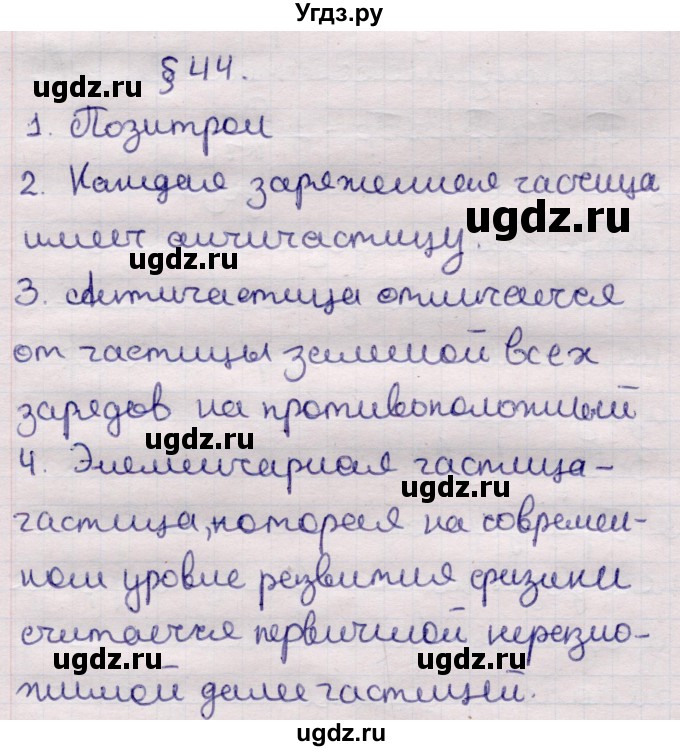 Угдз.ру
§ 44.
ugdz.ru
1. Позитрон
2. Каждая заряженная частица
ugdz.ru
имеет античастицу.
ugdz.ru
3. Античастица отличается
от частицы заменой всех
зарядов на противоположный
ugdz.ru
4. Элементарная частица –
ugdz.ru
частица, которая на современ-
ном уровне развития физики
считается первичной неразло-
ugdz.ru ugdz.ru
жимой далее частицей.
ugdz.ru